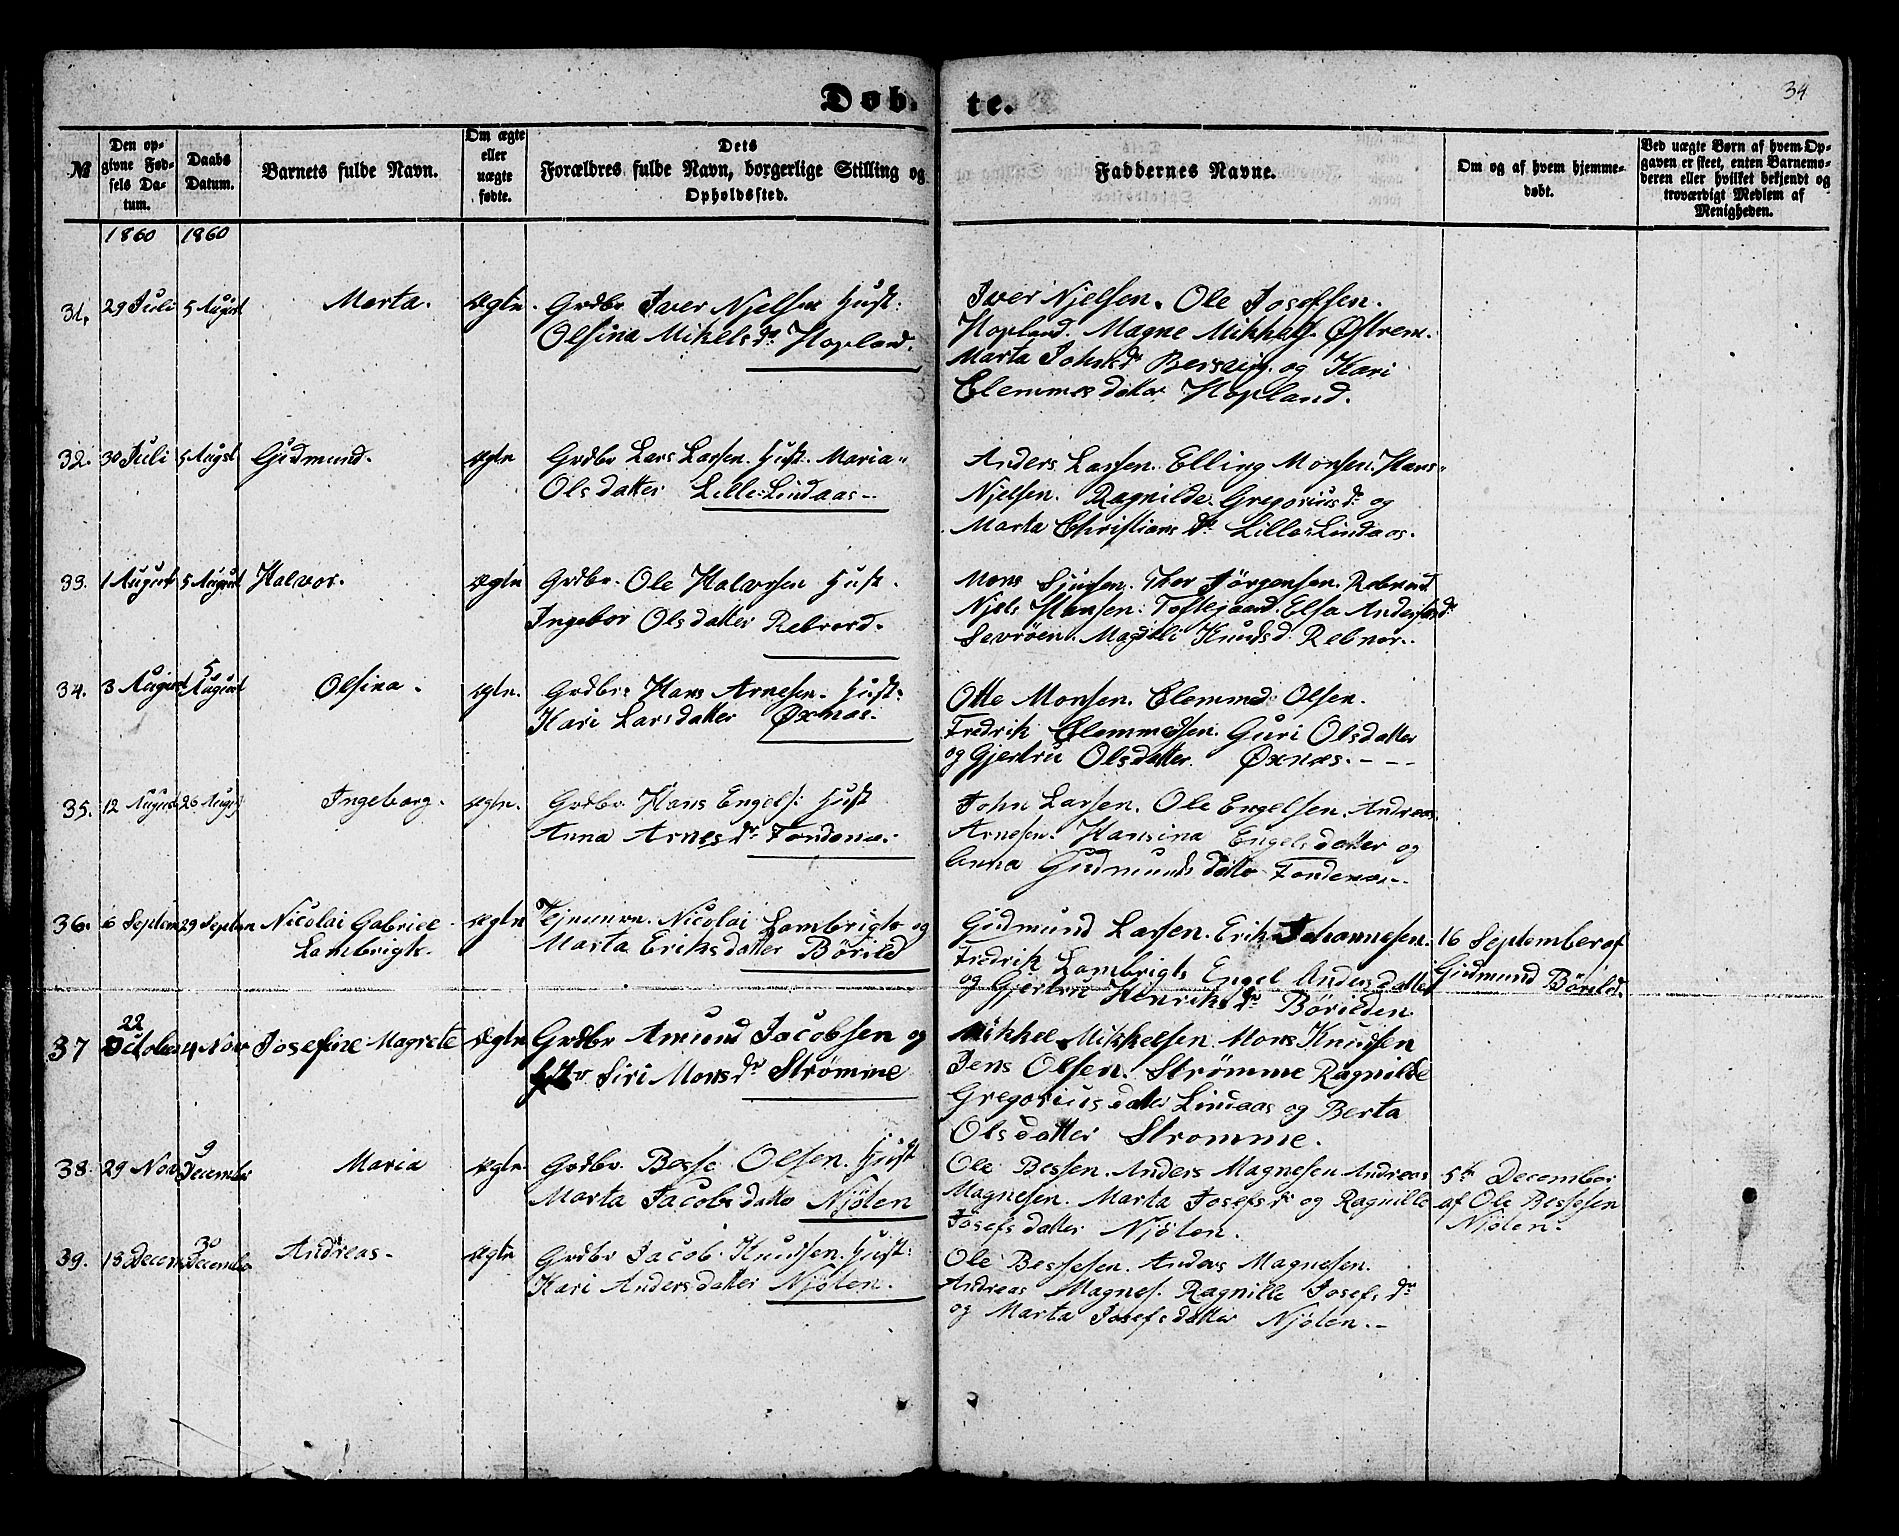 Døb-te.
34
№
Den op-
givne Fød-
sels Da-
tum.
Daabs
Datum.
Barnets fulde Navn.
Om ægte
eller
uægte
fødte.
Dets
Forældres fulde Navn, borgerlige Stilling og
Opholdssted.
Faddernes Navne.
Om og af hvem hjemme-
døbt.
Ved uægte Børn af hvem Op-
gaven er skeet, enten Barnemo-
deren eller hvilket bekjendt og
troværdigt Medlem af
Menigheden.
1860 1860
31. 29 Juli 5 August Marta. ægte. Grdbr Iver Njelsen Hust:
Olsina Mikelsdr Hopland.
Iver Njelsen. Ole Josefsen.
Hopland. Magne Mikkels. Østrem.
Marta Johnsdr og Kari
Clemmesdatter Hopland.
32. 30 Juli 5 Augst Gudmund. ægte Grdbr Lars Larsen. Hust. Maria
Olsdatter Lille Lindaas
Anders Larsen. Elling Monsen. Hans
Njelsen. Ragnilde Gregoriusdr og
Marta Christiansdr Lille Lindaas.
33. 1 August 5 August Halvor. ægte Grdbr. Ole Halvorsen Hust.
Ingebor Olsdatter Rebnord.
Mons Sjursen. Thor Jörgensen. Rebnord
Njels Hansen: Toftegaard. Elsa Andersdr
Sevröen. Magdeli Knudsd. Rebnor.
34. 3 August 5 August Olsina. ægte. Grdbr: Hans Arnesen. Hust:
Kari Larsdatter Øxnæs.
Otte Monsen. Clemmed Olsen.
Fredrik Clemmedsen. Guri Olsdatter
og Gjertru Olsdatter. Øxnæs. - - -
35. 12 August 26 August Ingeborg. ægte. Grdbr Hans Engels: Hust
Anna Arnesdr Fondenæs.
John Larsen. Ole Engelsen. Andreas
Arnesen. Hansina Engelsdatter og
Anna Gudmundsdatter Fondenæs
36. 6 Septem 29 Septem Nicolai Gabriel
Lambrigts. ægte Nicolai Lambrigts og
Marta Eriksdatter Börild
Gudmund Larsen. Erik Johannesen.
Fredrik Lambrigts Engel Andersdatter
og Gjertru Henriksdr Börilden
16 September af
Gudmund Börild.
37 22 October 4 Nov Josefine Magrete Ægte Grdbr Amund Jacobsen og
Siri Monsdr Strömme
Mikkel Mikkelsen. Mons Knudsen
Jens Olsen. Strömme Ragnilde
Gregoriusdatter Lindaas og Berta
Olsdatter Stromme.
38. 29 Nov 9 December Maria ægte Grdbr. Besse Olsen. Hust
Marta Jacobsdatter Njöten
Ole Bessen. Anders Magnesen Andreas
Magnesen. Marta Josefsdr og Ragnille
Josefsdatter Njöten.
5te December
af Ole Bessesen
Njöten.
39. 13 Decem 30 December Andreas ægte Grdbr Jacob Knudsen. Hust:
Kari Andersdatter Njöten.
Ole Bessesen. Anders Magnesen.
Andreas Magnes. Ragnille Josefsdr
og Marta Josefsdatter Njöten.